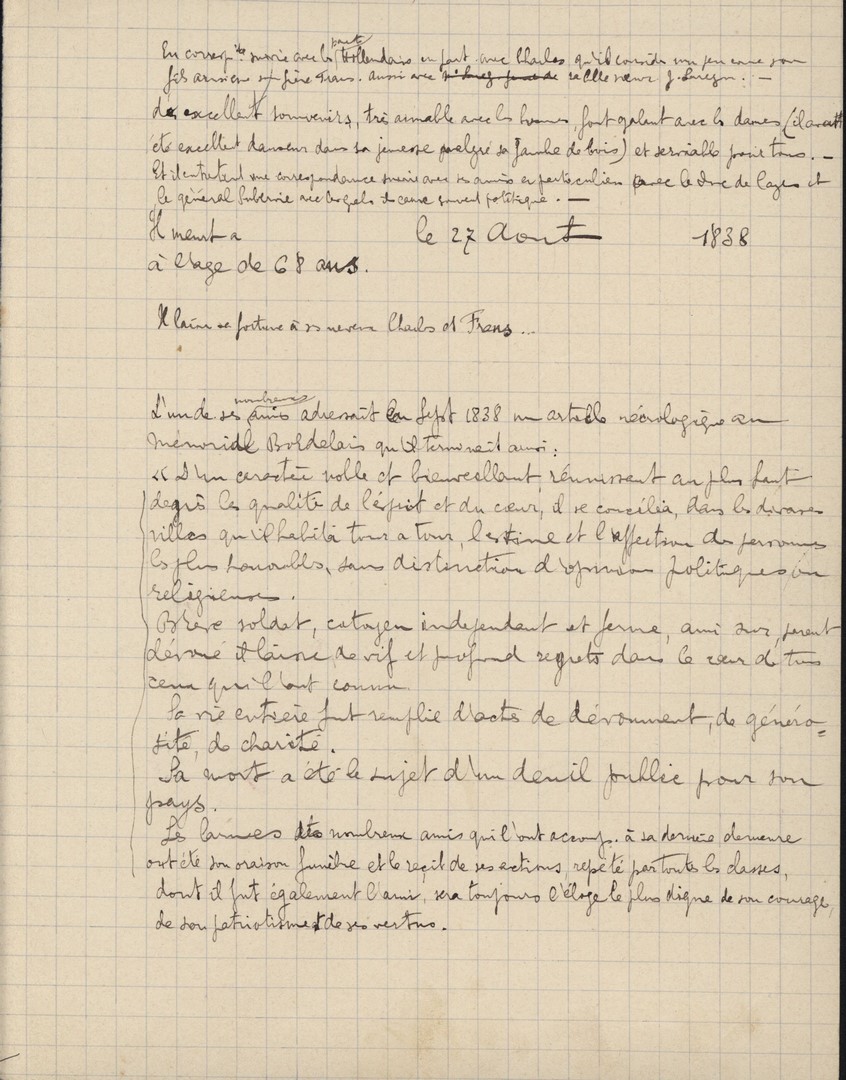 En corresp^te suivie avec les Hollandais en part. avec Charles qu'il considéra un peu comme son
fils ainsi que s/ frère Frans. aussi avec sa belle sœur J.
de excellent souvenirs, très aimable avec les hommes, fort galant avec les dames (il avait
été excellent danseur dans sa jeunesse malgré sa jambe de bois) et serviable pour tous. —
Et il entretient une correspondance suivie avec ses amis en particulier avec le duc de Cazes et
le général Subervie avec lesquels il cause souvent politique. —
Il meurt a le 27 Aout 1838
à l'age de 68 ans.
Il laisse sa fortune à ses neveux Charles et Frans...
L'un de ses nombreux amis adressait en Sept 1838 un article nécrologique au
Mémorial Bordelais qu'il terminait ainsi :
« D'un caractère noble et bienveillant, réunissant au plus haut
degrés les qualité de l'esprit et du cœur, il se concilia, dans les diverses
villes qu'il habita tour a tour, l'estime et l'affection des personnes
les plus honorables, sans distinction d'opinions politiques ou
religieuses.
Brave soldat, citoyen indépendant et ferme, ami sur, parent
dévoué il laisse de vif et profond regrets dans le cœur de tous
ceux qui l'ont connu.
Sa vie entière fut remplie d'actes de dévoument, de généro=
sité, de charité.
Sa mort a été le sujet d'un deuil public pour son
pays.
Les larmes des nombreux amis qui l'ont accomp. à sa dernière demeure
ont été son oraison funèbre et le reçit de ses actions, repété par toutes les classes,
dont il fut également l'ami, sera toujours l'éloge le plus digne de son courage,
de son patriotisme et de ses vertus.